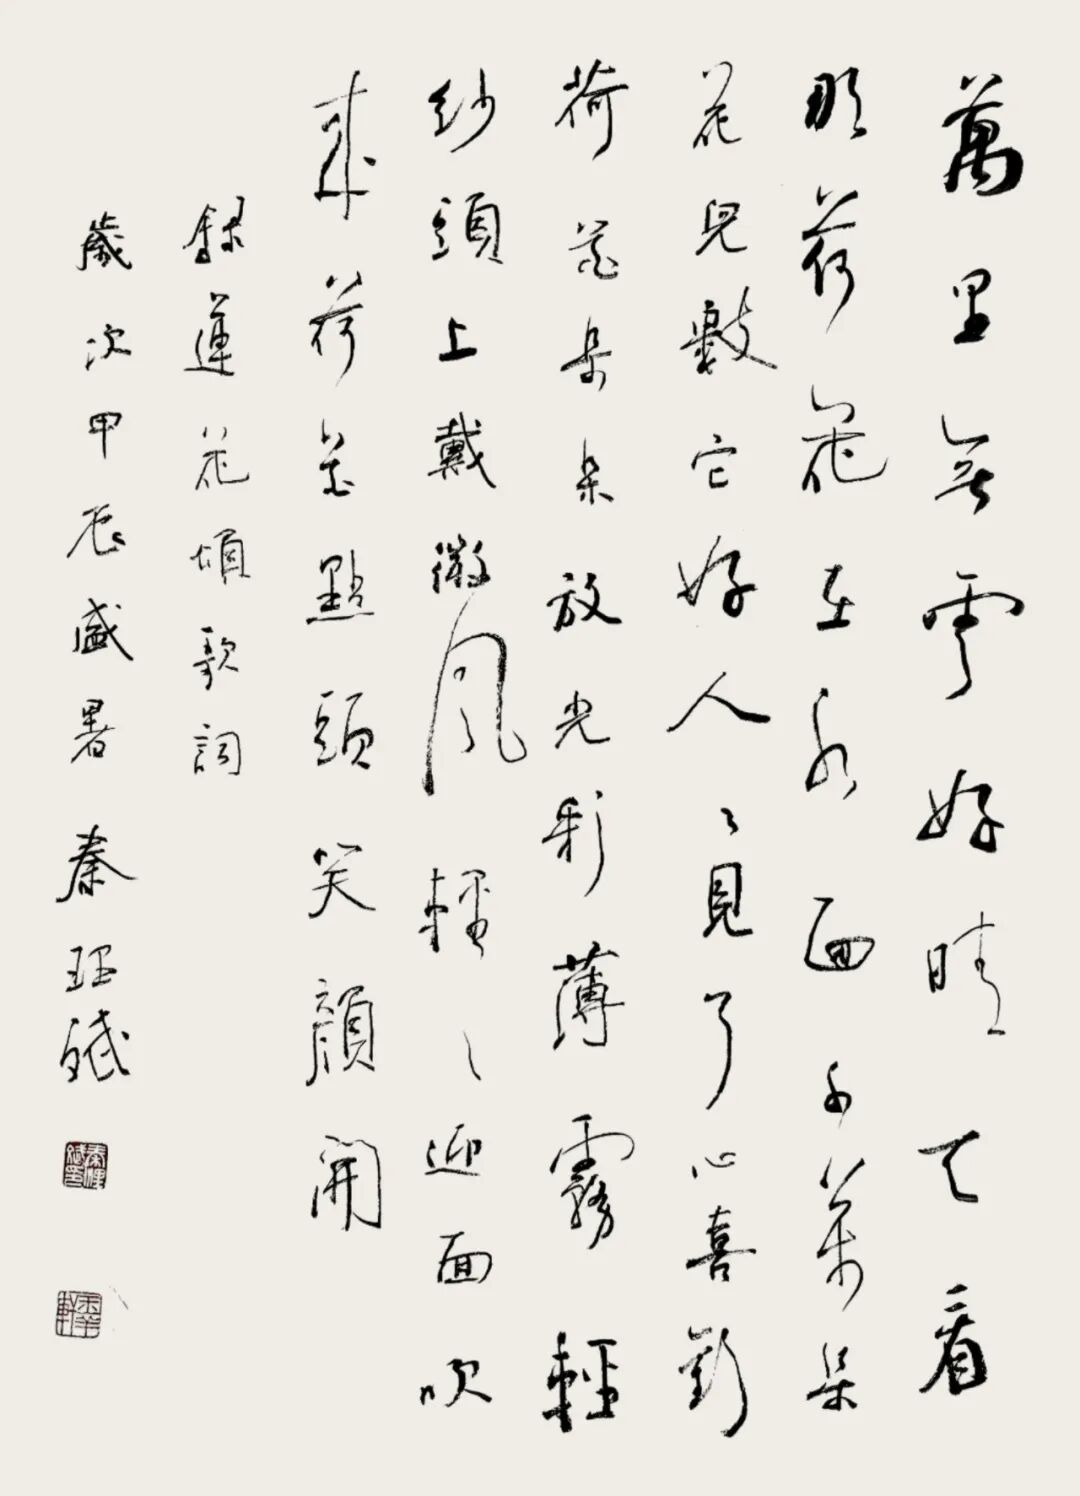 萬里無雲好晴天看
那荷花在水面千萬朵
花兒數它好人人見了心喜歡
荷花朵朵放光彩薄霧輕
紗頭上戴微風輕輕迎面吹
來荷花點頭笑顏開
錄蓮花頌歌詞
歲次甲辰盛暑秦